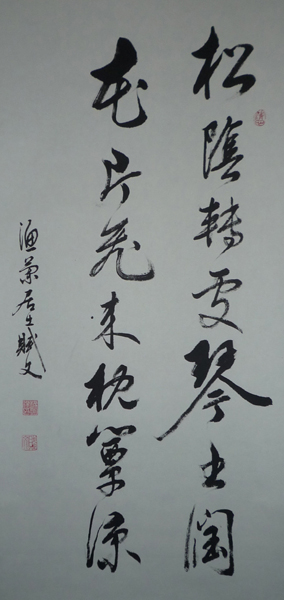 松陰轉處琴書潤
花片飛來枕簟涼
居士賦文